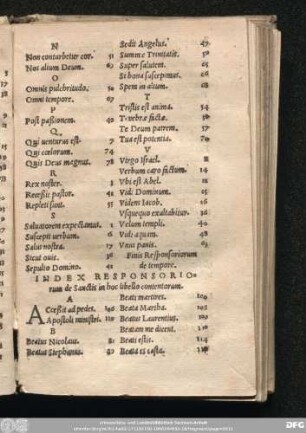 N
Non conturbetur cor. 51
Nos alium Deum. 67
O
Omnis pulchritudo. 50
Omni tempore. 67
P
Post passionem. 40
Q
Qui uenturus est. 7
Qui coelorum. 74
Quis Deus magnus. 78
R
Rex noster. 3
Reuersus pastor. 41
Repleti sunt. 55
S
Saluatorem expectamus. 1
Suscepit uerbum. 6
Salus nostra. 17
Sicut ouis. 38
Sepulto Domino. 41
Sedit Angelus. 47
Summe Trinitatis. 59
Super salutem. 65
Si bona suscepimus. 66
Spem in alium. 68
T
Tristis est anima. 34
Tenebræ factæ. 36
Te Deum patrem. 57
Tua est potentia. 70
V
Virgo Israel. 11
Verbum caro factum. 14
Vbi est Abel. 21
Vidi Dominum. 25
Videns Iacob. 26
Vsquequo exaltabitur. 36
Velum templi. 40
Vidi aquam. 48
Vnus panis. 63
Finis Responsoriorum
de tempore.
INDEX RESPONSORIO-
rum de Sanctis in hoc libello contentorum.
A
Accessit ad pedes. 100
Apostoli ministri. 120
B
Beatus Nicolaus. 81
Beatus Stephanus. 82
Beati martires. 104
Beata Martha. 103
Beatus Laurentius. 105
Beatam me dicent. 110
Beati estis. 114
Beata es casta.